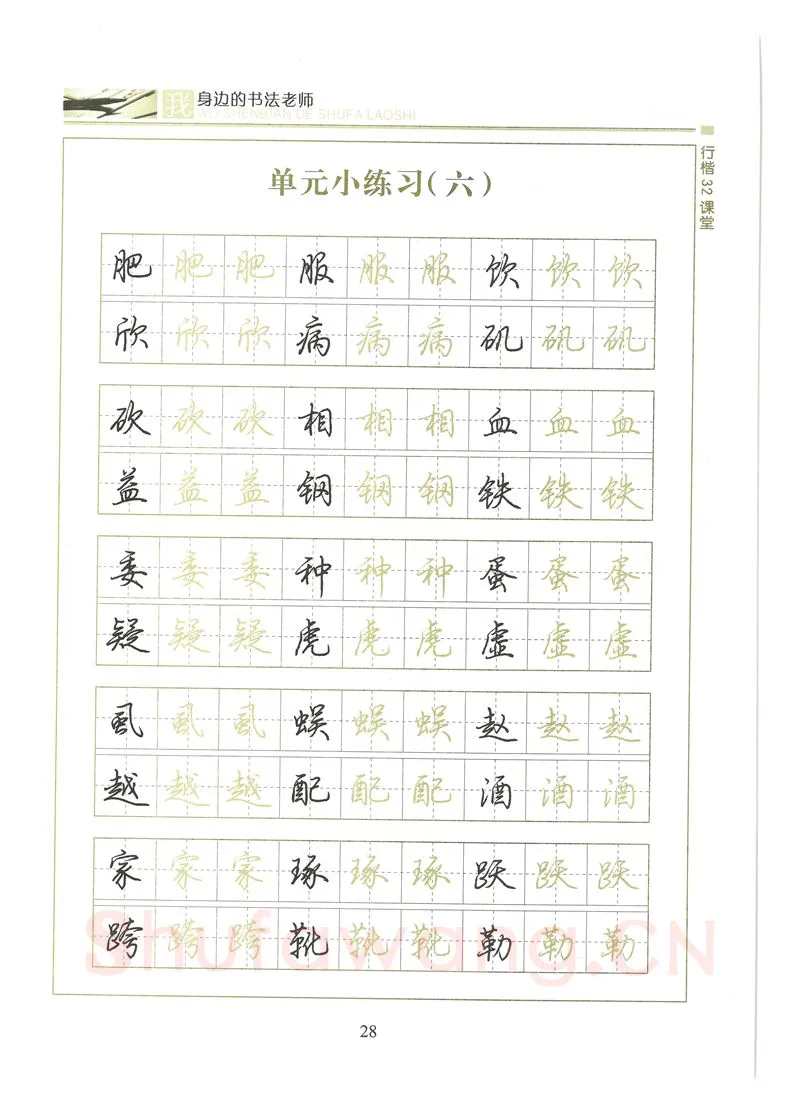 我 身边的书法老师
WO SHENBIAN DE SHUFA LAOSHI
行楷32课堂
单元小练习(六)
肥肥肥服服服饮饮饮
欣欣欣病病病矾矾矾
砍砍砍相相相血血血
益益益钢钢钢铁铁铁
委委委种种种蛋蛋蛋
疑疑疑虎虎虎虚虚虚
虱虱虱蜈蜈蜈赵赵赵
越越越配配配酒酒酒
家家家琢琢琢跃跃跃
跨跨跨靴靴靴勒勒勒
Shufawang.CN
28